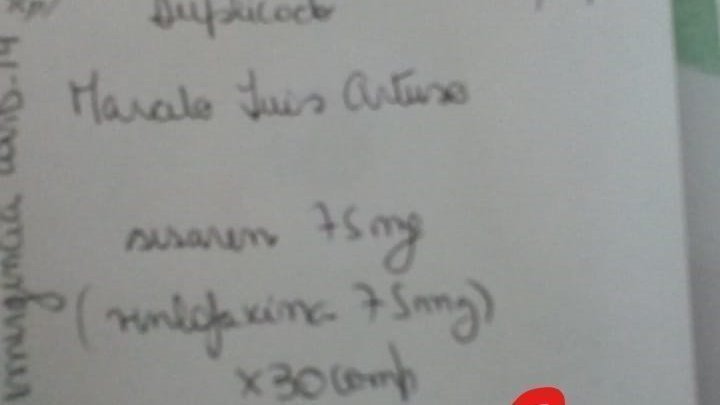 Duplicado
Marcelo Luis Artuso
sesaren 75mg
(venlafaxina 75mg)
x30 comp
emergencia COVID-19